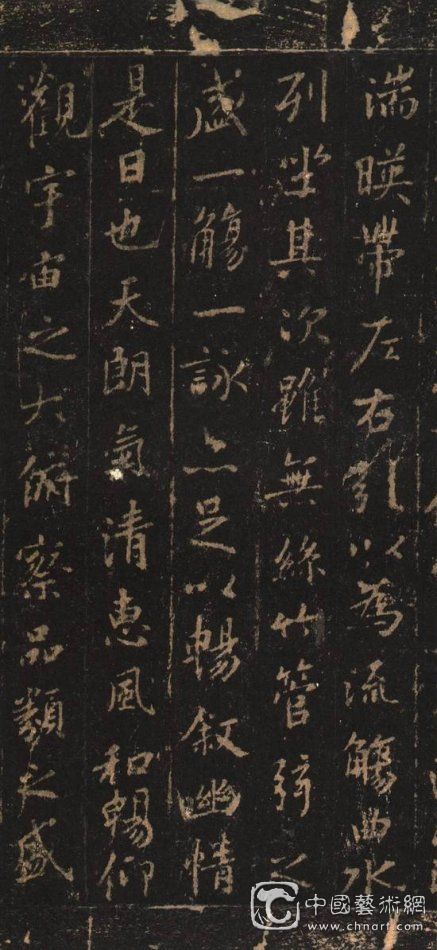 湍暎帶左右引以為流觴曲水
列坐其次雖無絲竹管弦之
盛一觴一詠亦足以暢敘幽情
是日也天朗氣清惠風和暢仰
觀宇宙之大俯察品類之盛
中國藝術網
www.chnart.com